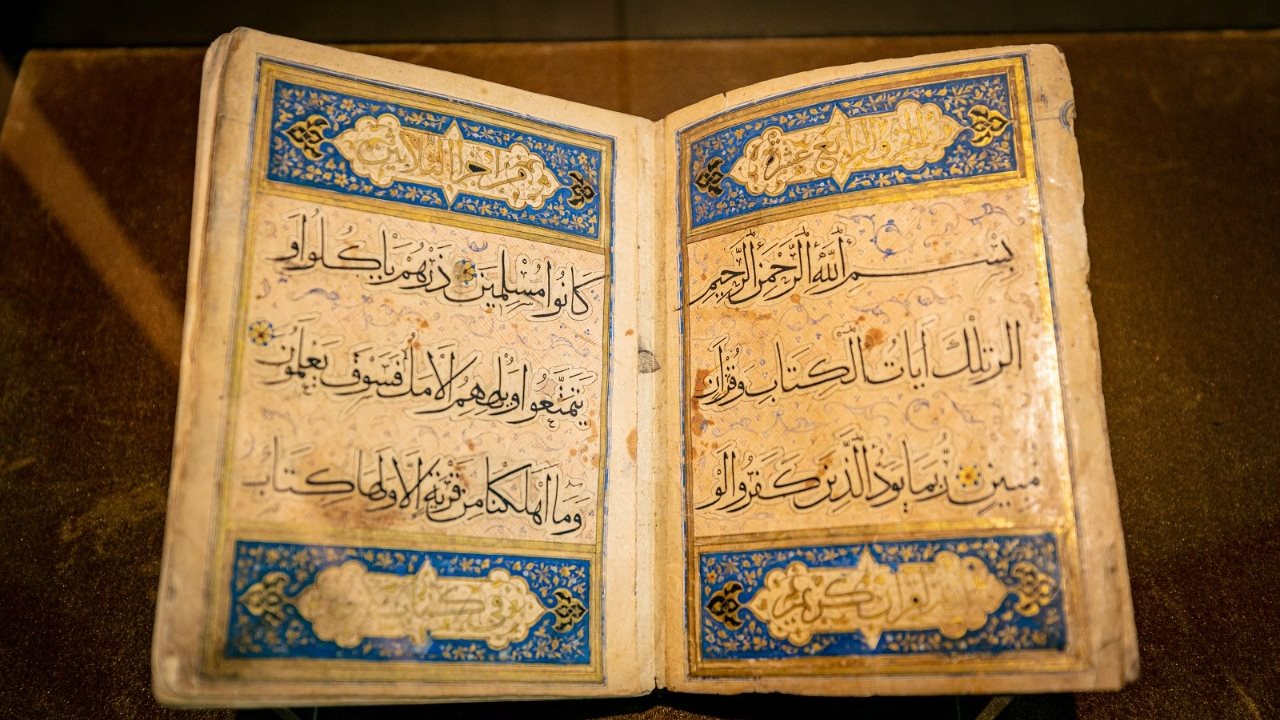 الجزو الرابع عشر
بِسْمِ اللهِ الرَّحْمٰنِ الرَّحِيمِ
الر تِلْكَ اٰيَاتُ الْكِتَابِ وَقُرْاٰنٍ
مُبِينٍ رُبَمَا يَوَدُّ الَّذِينَ كَفَرُوا لَوْ
انه لقران كريم
من اجزا الثلاثين
كَانُوا مُسْلِمِينَ ذَرْهُمْ يَاْكُلُوا وَ
يَتَمَتَّعُوا وَيُلْهِهِمُ الْاَمَلُ فَسَوْفَ يَعْلَمُونَ
وَمَا اَهْلَكْنَا مِنْ قَرْيَةٍ اِلَّا وَلَهَا كِتَابٌ
في كتاب